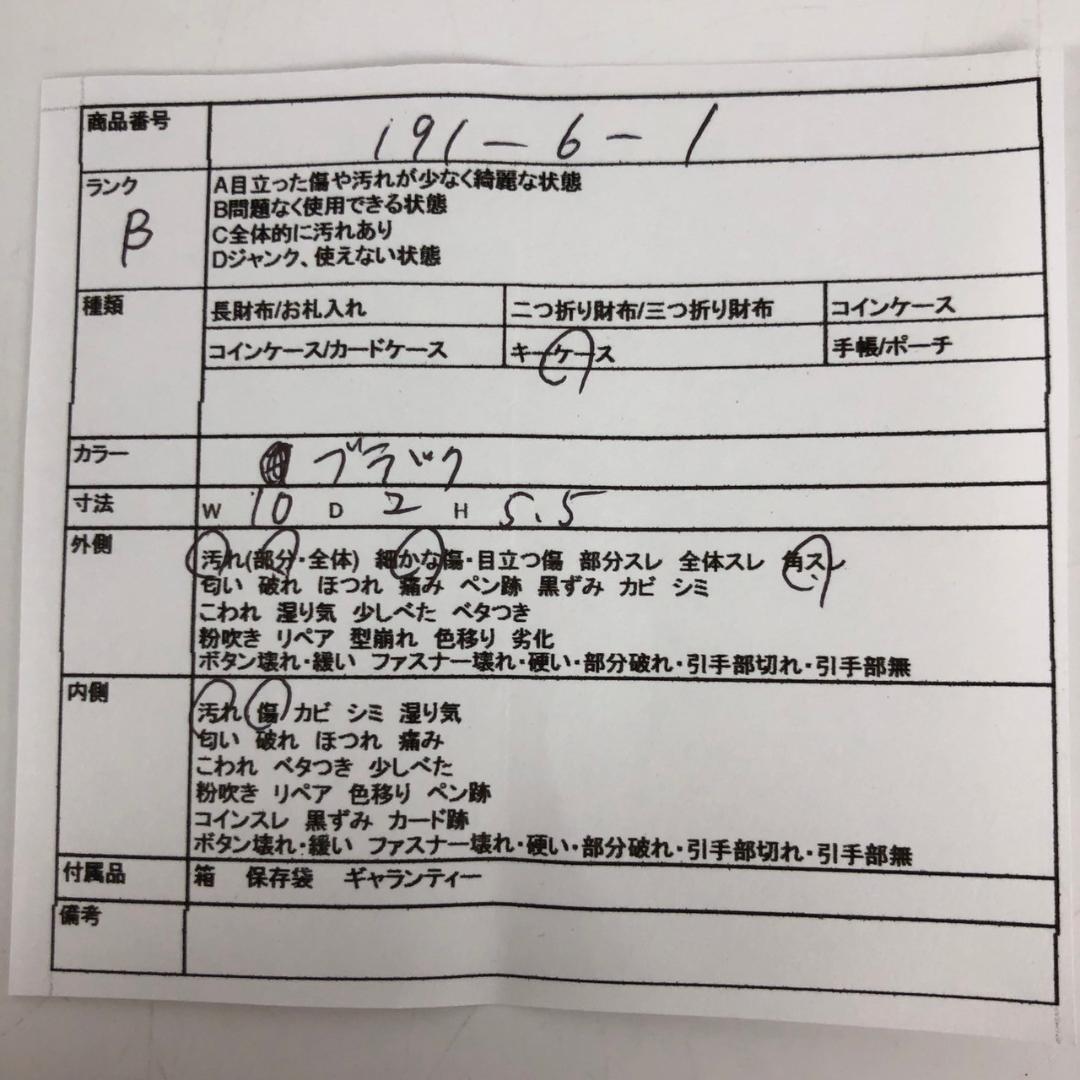 商品番号 191-6-1
ランク B
A目立った傷や汚れが少なく綺麗な状態
B問題なく使用できる状態
C全体的に汚れあり
Dジャンク、使えない状態
種類 長財布/お札入れ 二つ折り財布/三つ折り財布 コインケース
コインケース/カードケース キーケース 手帳/ポーチ
カラー ブラック
寸法 W 10 D 2 H 5.5
外側 汚れ(部分・全体) 細かな傷・目立つ傷 部分スレ 全体スレ 角スレ
匂い 破れ ほつれ 痛み ペン跡 黒ずみ カビ シミ
こわれ 湿り気 少しべた ベタつき
粉吹き リペア 型崩れ 色移り 劣化
ボタン壊れ・緩い ファスナー壊れ・硬い・部分破れ・引手部切れ・引手部無
内側 汚れ 傷 カビ シミ 湿り気
匂い 破れ ほつれ 痛み
こわれ ベタつき 少しべた
粉吹き リペア 色移り ペン跡
コインスレ 黒ずみ カード跡
ボタン壊れ・緩い ファスナー壊れ・硬い・部分破れ・引手部切れ・引手部無
付属品 箱 保存袋 ギャランティー
備考